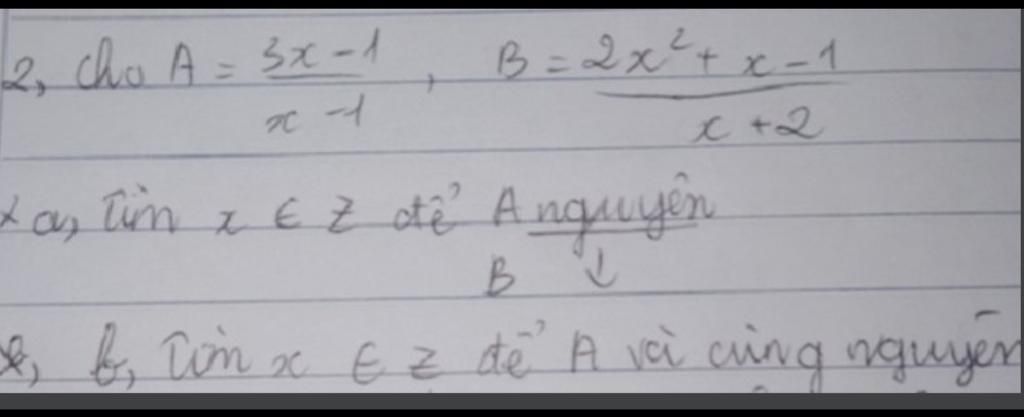 2, Cho A = 3x - 1 / x - 1 , B = 2x² + x - 1 / x + 2
a, Tìm x ∈ Z để A nguyên
B ↓
b, Tìm x ∈ Z để A và cùng nguyên